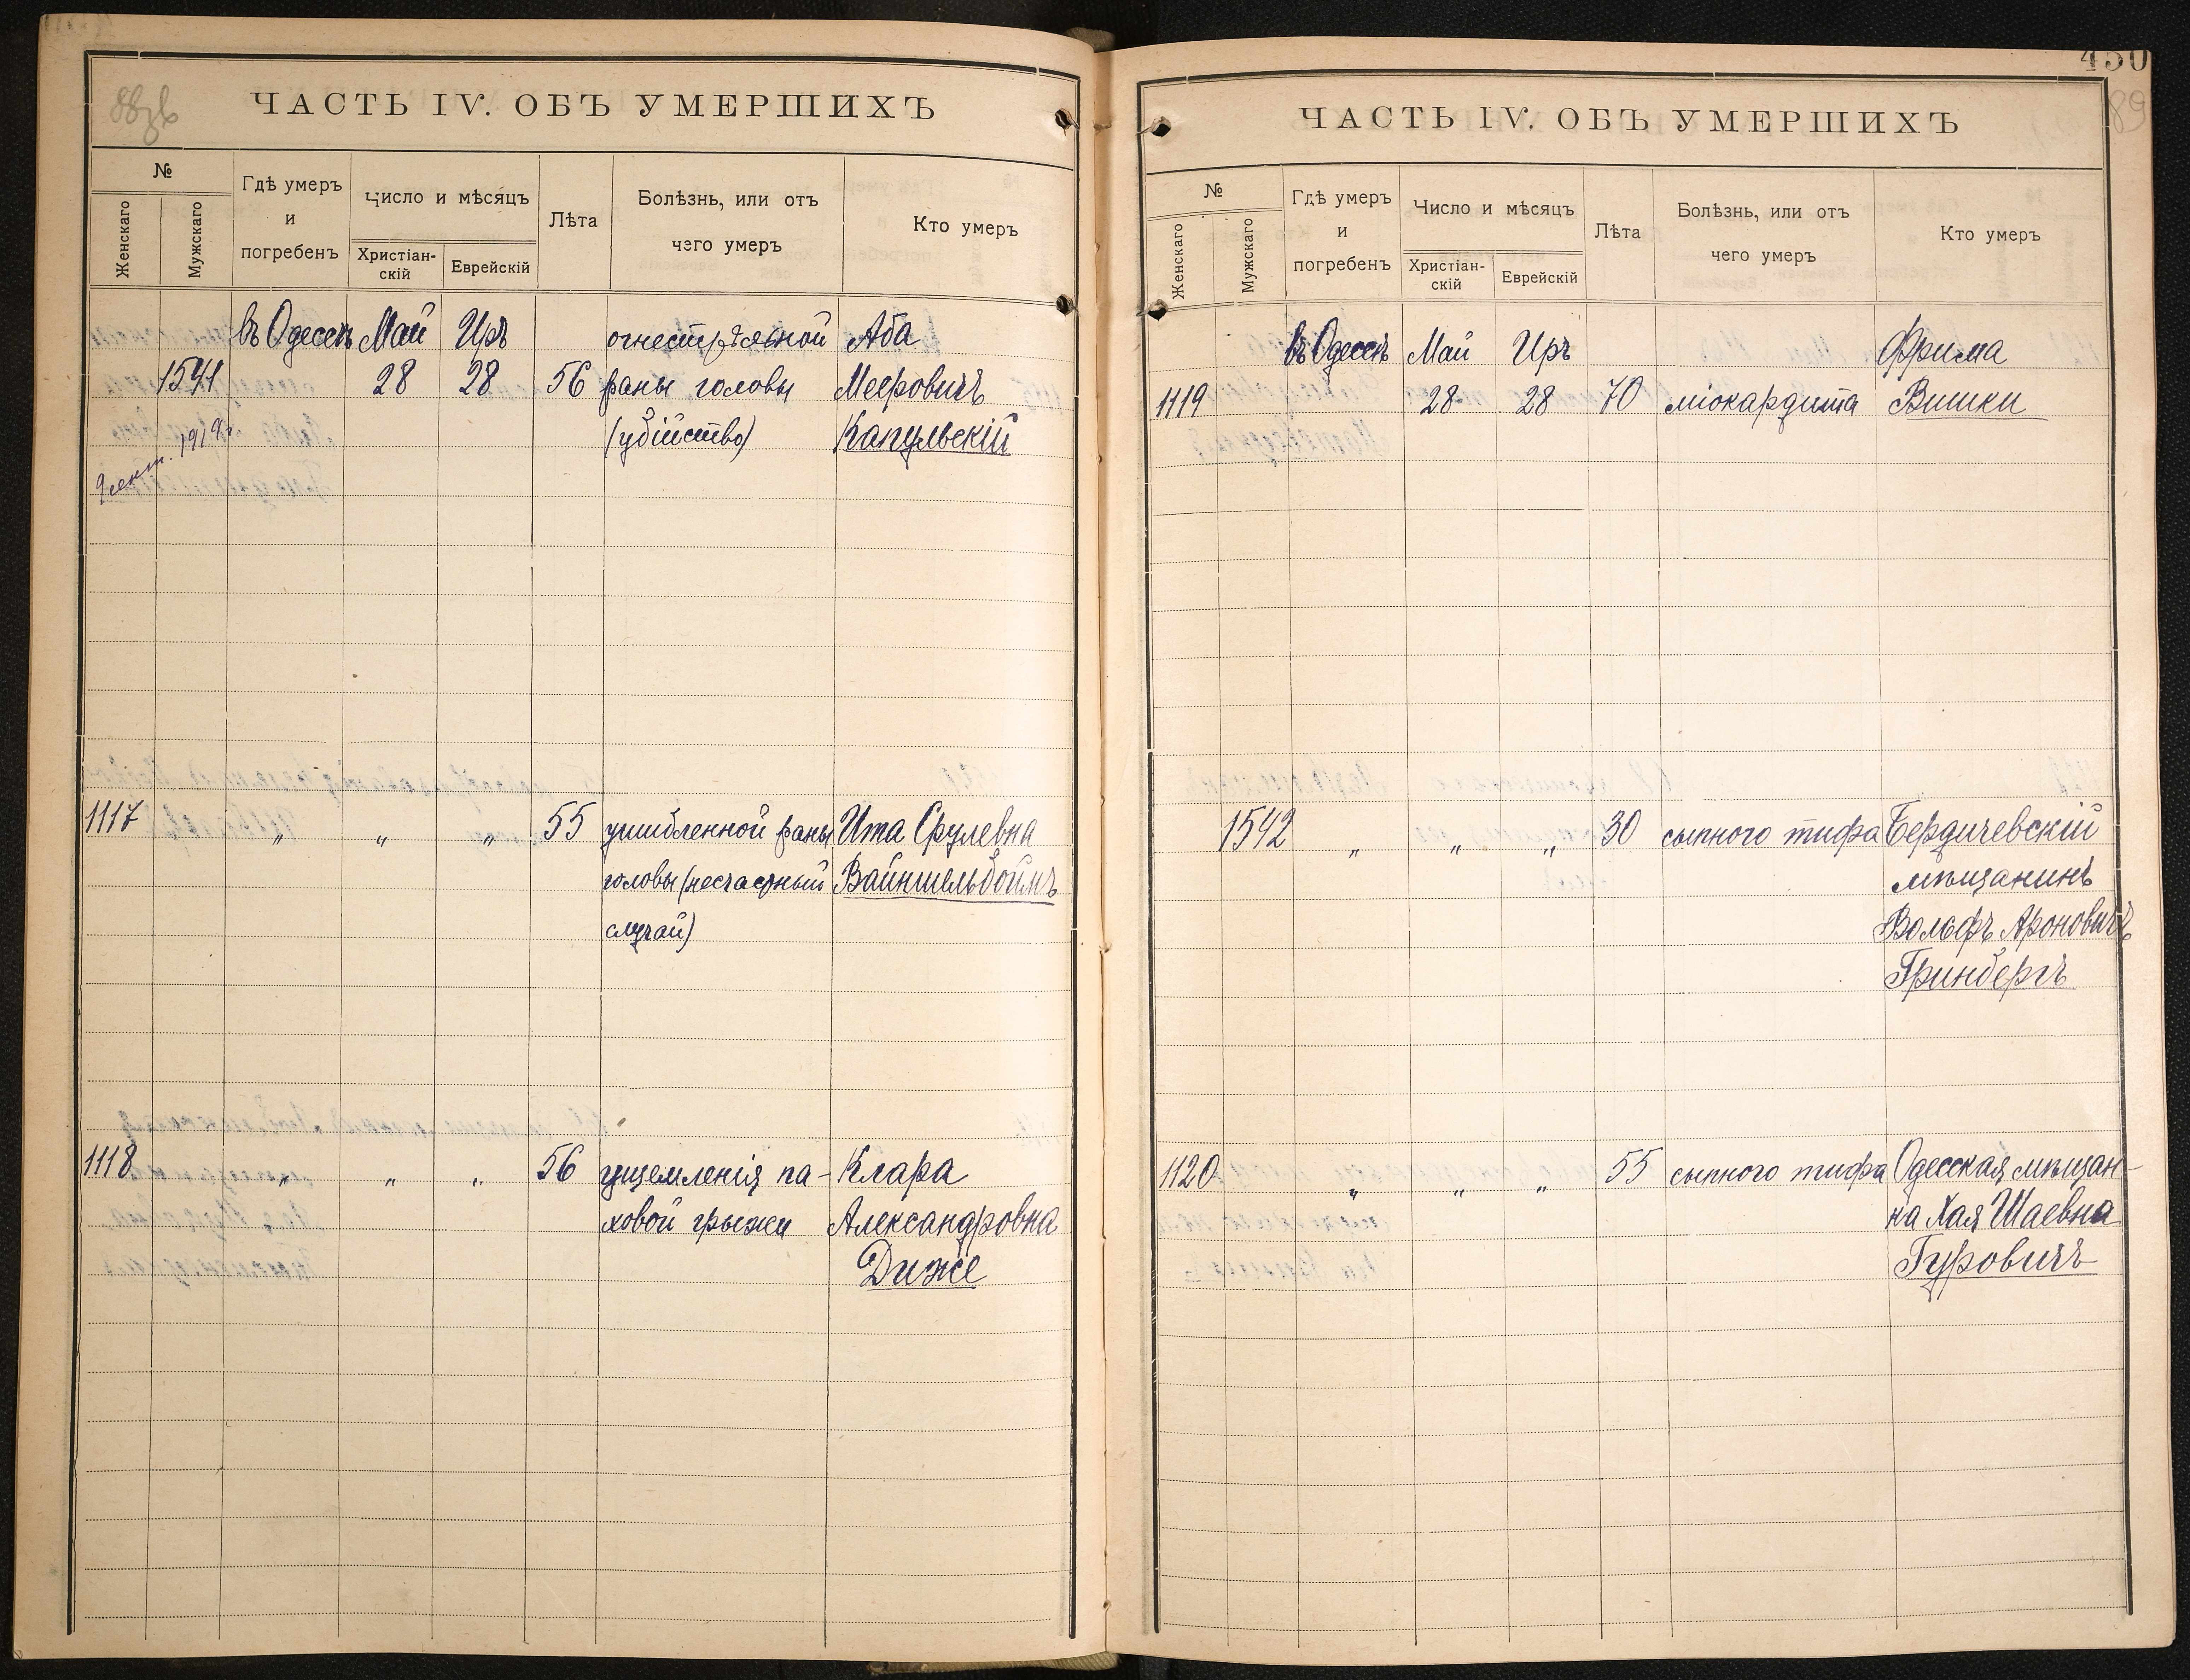 88зв
ЧАСТЬ IV. ОБЪ УМЕРШИХЪ
№
Женскаго
Мужскаго
Гдѣ умеръ
и
погребенъ
Число и мѣсяцъ
Христіан-
скій
Еврейскій
Лѣта
Болѣзнь, или отъ
чего умеръ
Кто умеръ
въ Одессѣ Май Иръ огнестрѣльной Аба
1541 28 28 56 раны головы Мееровичъ
(убійство) Капульскій
1919г.
1117 „ „ „ 55 ушибленной раны Ита Срулевна
головы (несчастный Вайншельбоймъ
случай)
1118 „ „ „ 56 ущемленія па- Клара
ховой грыжи Александровна
Диже
450
89
ЧАСТЬ IV. ОБЪ УМЕРШИХЪ
№
Женскаго
Мужскаго
Гдѣ умеръ
и
погребенъ
Число и мѣсяцъ
Христіан-
скій
Еврейскій
Лѣта
Болѣзнь, или отъ
чего умеръ
Кто умеръ
въ Одессѣ Май Иръ Фрима
1119 28 28 70 міокардита Вишки
1542 „ „ „ 30 сыпного тифа Бердичевскій
мѣщанинъ
Вольфъ Ароновичъ
Гринбергъ
1120 „ „ „ 55 сыпного тифа Одесская мѣщан-
ка Хая Шаевна
Гуровичъ